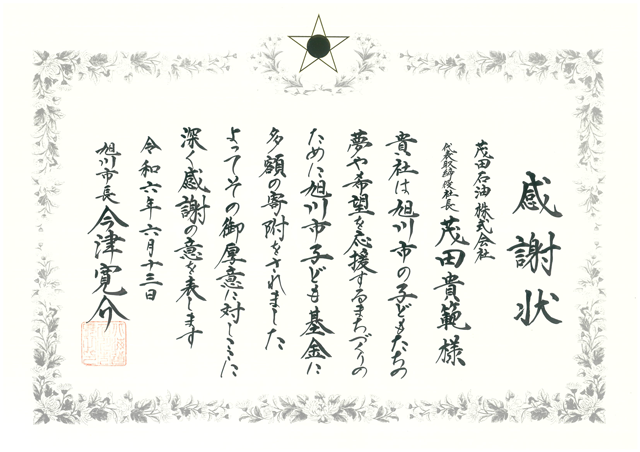 感謝状
茂田石油株式会社
代表取締役社長 茂田貴範様
貴社は旭川市の子どもたちの
夢や希望を応援するまちづくりの
ために旭川市子ども基金に
多額の寄附をされました
よってその御厚意に対しここに
深く感謝の意を表します
令和六年六月十三日
旭川市長 今津寛介